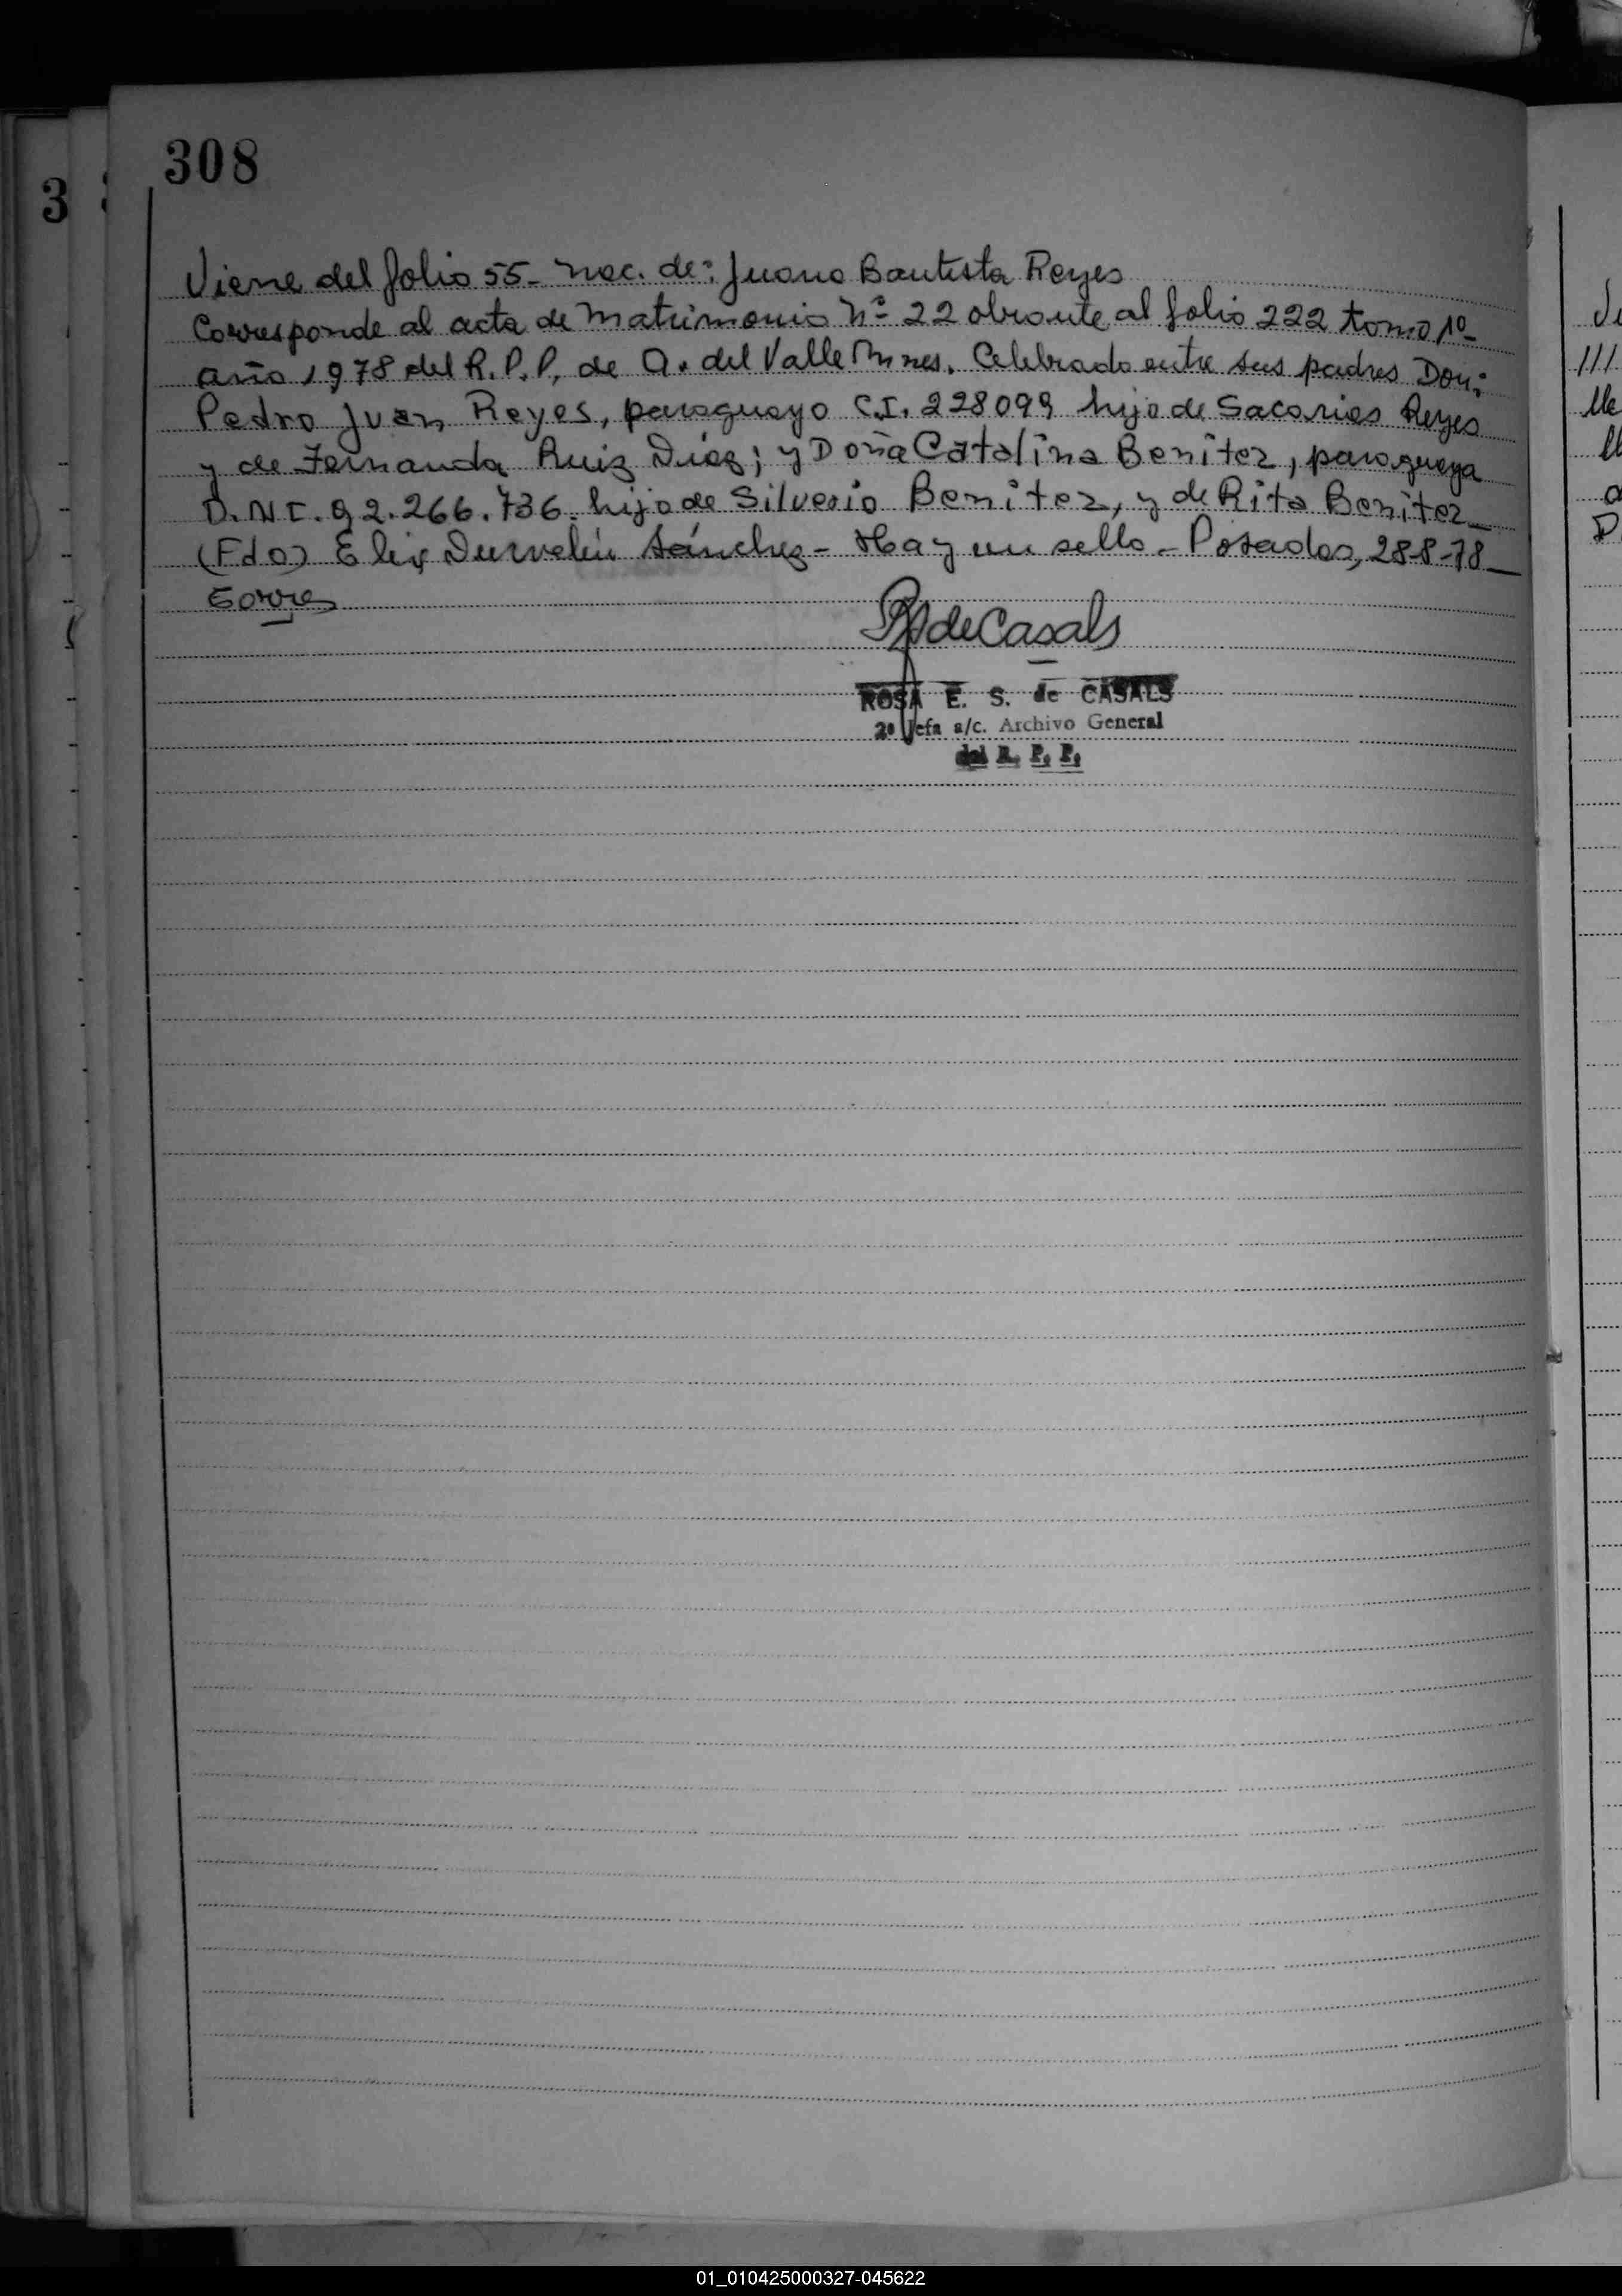 308
3
Viene del folio 55- nac. de: Juana Bautista Reyes
Corresponde al acta de matrimonio Nº 22 obrante al folio 222 tomo 1º
año 1978 del R.P.P. de A. del Valle Mnes. Celebrado entre sus padres Don:
Pedro Juan Reyes, paraguayo C.I. 228099 hijo de Sacarias Reyes
y de Fernanda Ruiz Diaz; y Doña Catalina Benitez, paraguaya
D.N.I. 92.266.736. hija de Silverio Benitez, y de Rita Benitez_
(Fdo) Sánchez- Hay un sello- Posadas, 28-8-78_
de Casals
ROSA E. S. de CASALS
2ª Jefa a/c. Archivo General
del R. P. P.
01_010425000327-045622